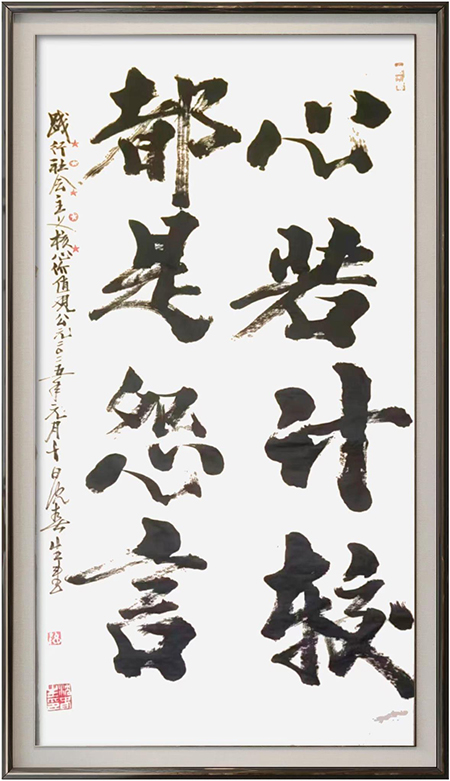 心若计较
都是怨言
行社会主义核心价值观公元二〇二五年元月十日